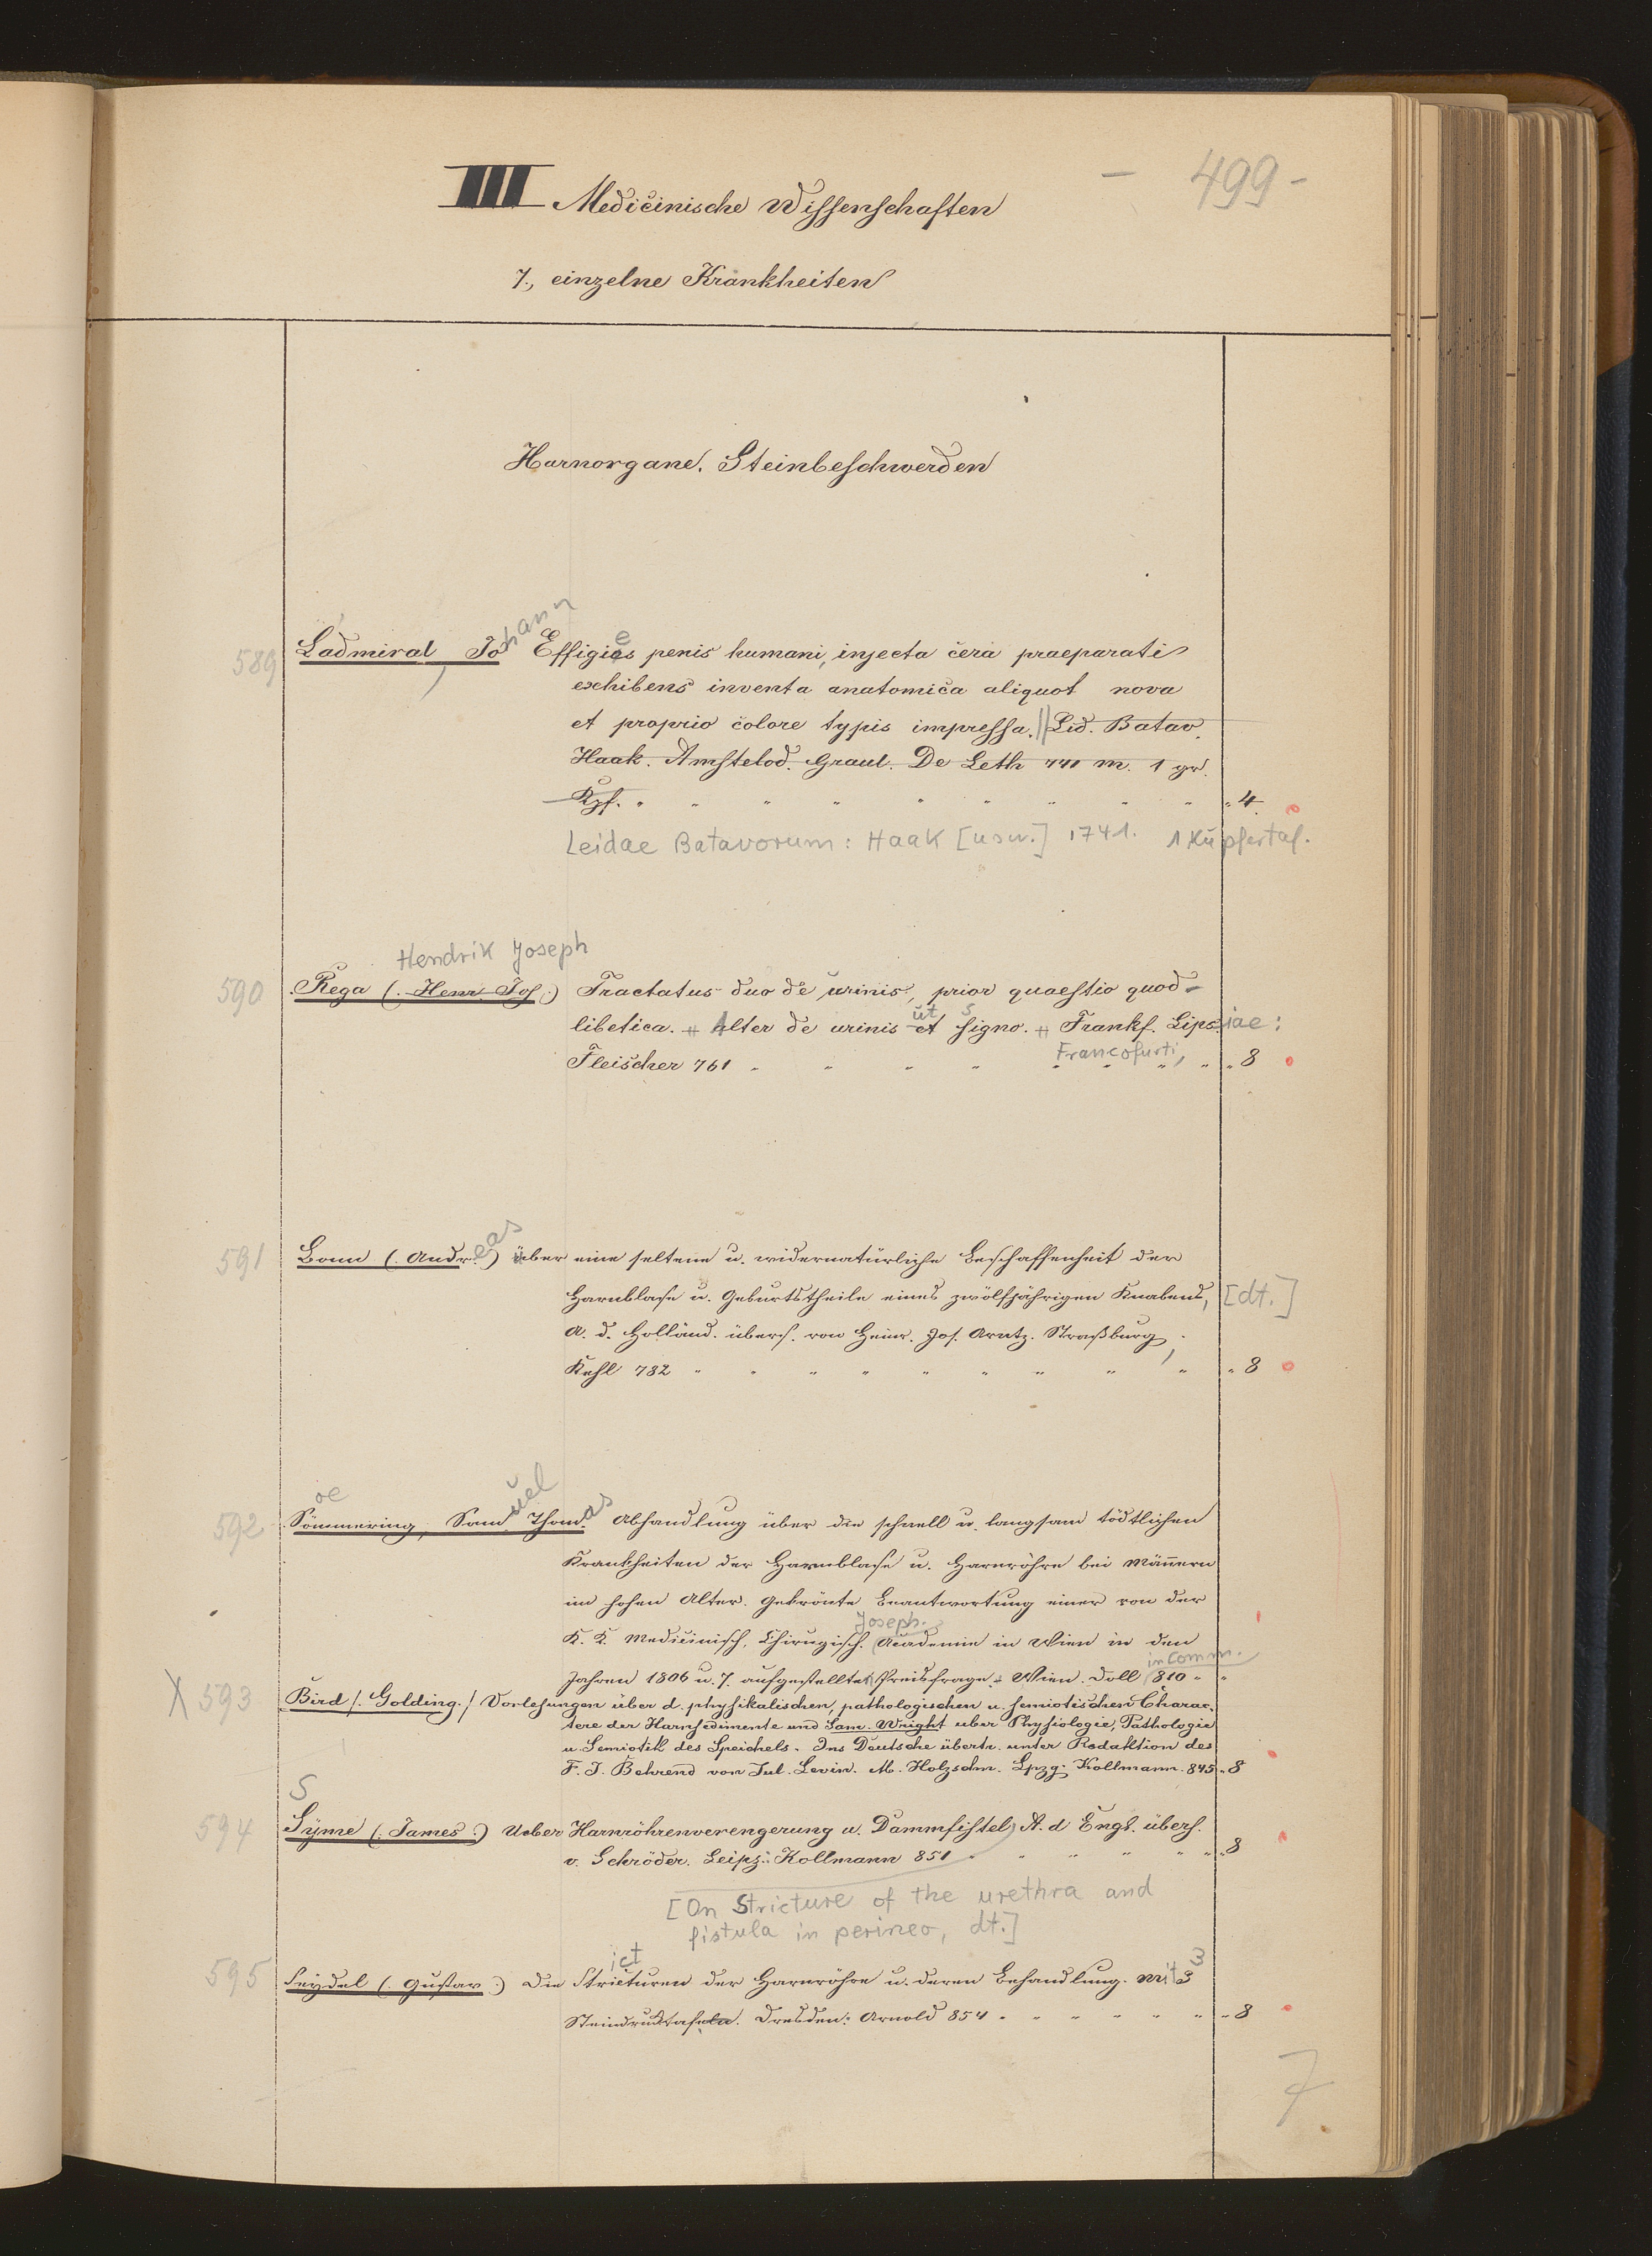 - 499 -
III Medicinische Wissenschaften
7., einzelne Krankheiten
Harnorgane. Steinbeschwerden
589 Ladmiral, Johann Effigies penis humani, injecta cera praeparati
exhibens inventa anatomica aliquot nova
et proprio colore typis impressa. || Lid. Batav.
Haak. Amstelod. Graul. De Leth 741 m. 1 gr.
Kpf. " " " " " " " " " " 4
Leidae Batavorum: Haak [usw.] 1741. 1 Kupfertaf.
Hendrik Joseph
590 Rega (. Henr Jos .) Tractatus duo de urinis, prior quaestio quod-
ut s
libetica. Alter de urinis et signo. Frankf. Lipsiae:
Francofurti,
Fleischer 761 " " " " " " " " " 8
591 Bonn (. Andreas .) über eine seltene u. widernatürliche Beschaffenheit der
Harnblase u. Geburtstheile eines zwölfjährigen Knabens, [dt.]
A. d. Holländ. übers. von Heinr. Jos. Arntz. Straßburg,
Kehl 782 " " " " " " " " " " 8
oe
592 Sömmering, Samuel Thomas Abhandlung über die schnell u. langsam tödtlichen
Krankheiten der Harnblase u. Harnröhre bei Männern
im hohen Alter. Gekrönte Beantwortung einer von der
Joseph.
K. K. Medicinisch, Chirugisch. Academie in Wien in den
in Comm.
Jahren 1806 u. 7. aufgestellten Preisfrage. Wien. Doll 810 " "
X 593 Bird /. Golding. / Vorlesungen über d. physikalischen, pathologischen u. semiotischen Charac-
tere der Harnsedimente und Sam. Wright uber Physiologie, Pathologie
u. Semiotik des Speichels. Ins Deutsche übertr. unter Redaktion des
F. J. Behrend von Jul. Levin. M. Holzschn. Lpzg: Kollmann. 845 " 8
S
594 Syme (. James .) Ueber Harnröhrenverengerung u. Dammfistel A. d Engl. übers.
v. Schröder. Leipz: Kollmann 851 " " " " " " 8
[On Stricture of the urethra and
fistula in perineo, dt.]
ict 3
595 Seydel (. Gustav .) Die Stricturen der Harnröhre u. deren Behandlung. mit 3
Steindrucktafeln. Dresden: Arnold 854 " " " " " " " 8
7